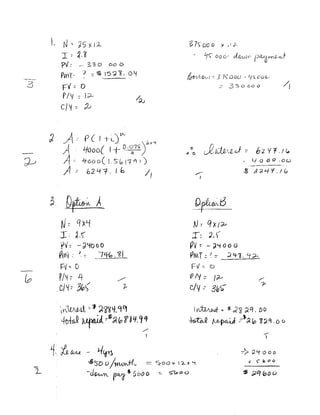 1. N = 25 x 12
I = 2.8
PV = - 330 000
PMT = ? = $ 1528. 04
FV = 0
P/Y = 12
C/Y = 2
375 000 x .12
= 45 000 down payment
borrow = 375000 - 45000
= 330000
3
2. A = P(1+i)^n
A = 4000(1+
A = 4000(1.561791)
A = 6247.16
∴ Interest = 6247.16
- 4000.00
$ 2247.16
2
3. Option A
N = 9x4
I = 2.5
PV = -24000
PMT = ? = 746.81
FV = 0
P/Y = 4
C/Y = 365
interest = $ 2884.99
total repaid = $26884.99
Option B
N = 9x12
I = 2.5
PV = - 24000
PMT = ? = 248.42
FV = 0
P/Y = 12
C/Y = 365
Interest = $ 2829.00
total repaid = $26 829.00
6
4. Lease - 4yrs
$500/month = 500 x 12 x 4
-down pay $5000 = 5600
=> 24000
+ 5600
$ 29600
2